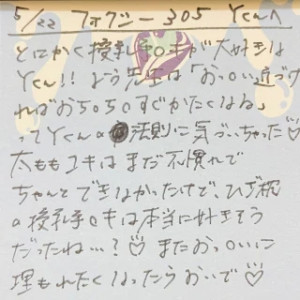 5/22 フォクシー 305 Yくんへ
とにかく授乳手○キが大好きな
Yくん!! よう先生は「おっ○い近づけ
ればおち○ちんすぐかたくなるね」
ってYくんの法則に気づいちゃった♡
太ももコキはまだ不慣れで
ちゃんとできなかったけど、ひざ枕
の授乳手○キは本当に好きそう
だったね…?♡ またおっ○いに
埋もれたくなったらおいで♡